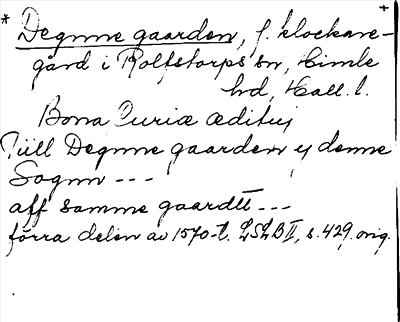 * Degnne gaarden, f. klockare- +
gård i Rolfstorps sn, Himle
hd, Hall. l.
Bona Curiæ ædituj
Tiill Degnne gaarden y denne
Sognn ---
aff samme gaardtt ---
förra delen av 1570-t. LSLB II, s. 429, orig.